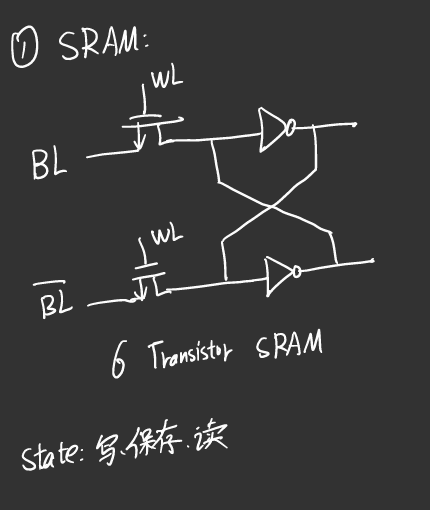 ① SRAM:
WL
BL
WL
B̅L̅
6 Transistor SRAM
State: 写、保存、读